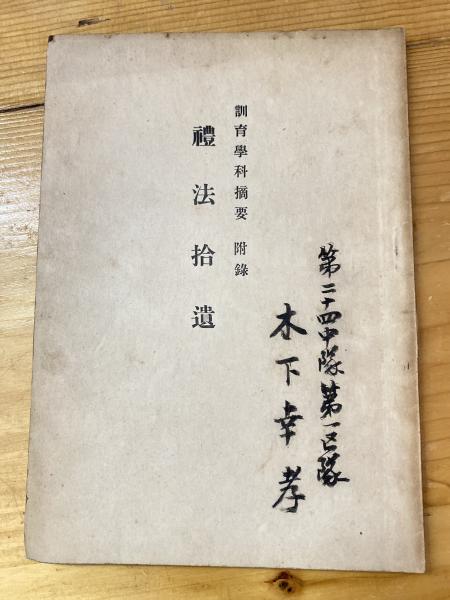 第二十四中隊第一区隊
木下幸孝
訓育學科摘要 附錄
禮法拾遺